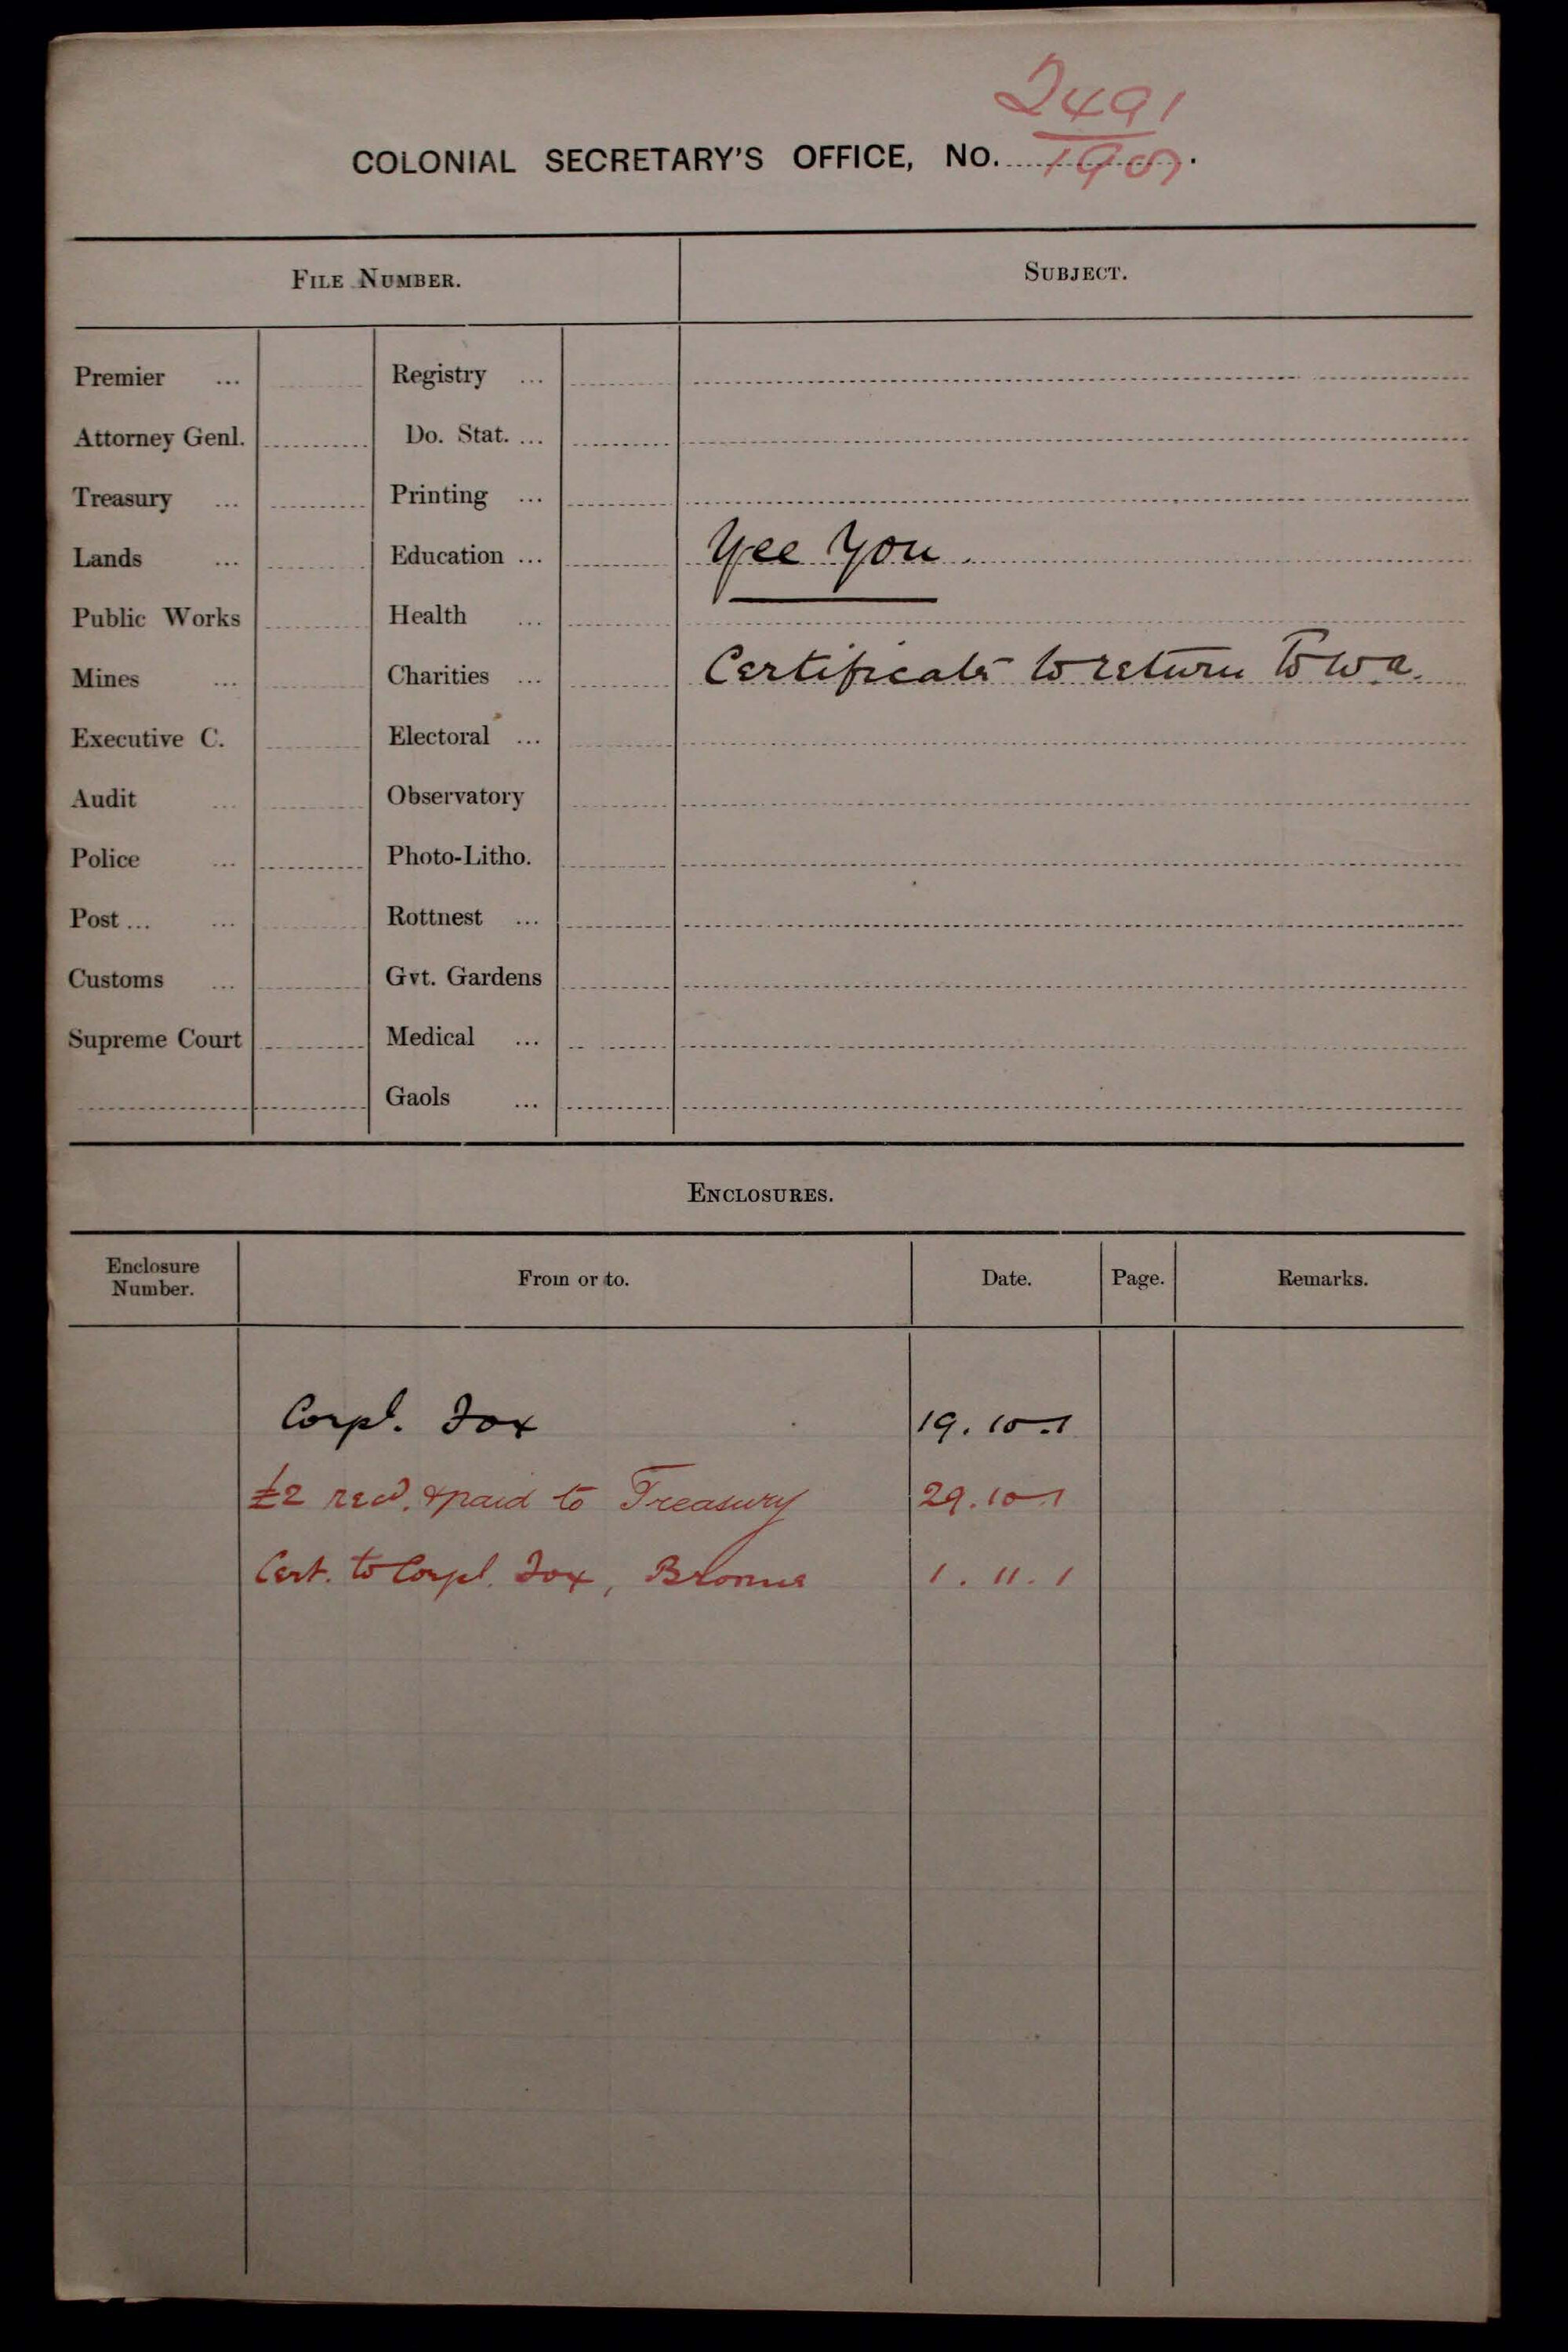 2491
COLONIAL SECRETARY'S OFFICE, NO. 1901.
FILE NUMBER.
SUBJECT.
Premier ... Registry ...
Attorney Genl. Do. Stat. ...
Treasury ... Printing ...
Lands ... Education ... Yee You
Public Works Health ...
Mines ... Charities ... Certificate to return to W a.
Executive C. Electoral ...
Audit ... Observatory
Police ... Photo-Litho.
Post ... ... Rottnest ...
Customs ... Gvt. Gardens
Supreme Court Medical ...
Gaols ...
ENCLOSURES.
Enclosure Number. From or to. Date. Page. Remarks.
Corpl. Fox 19.10.1
£2 recd. & paid to Treasury 29.10.1
Cert. to Corpl. Fox, Broome 1.11.1